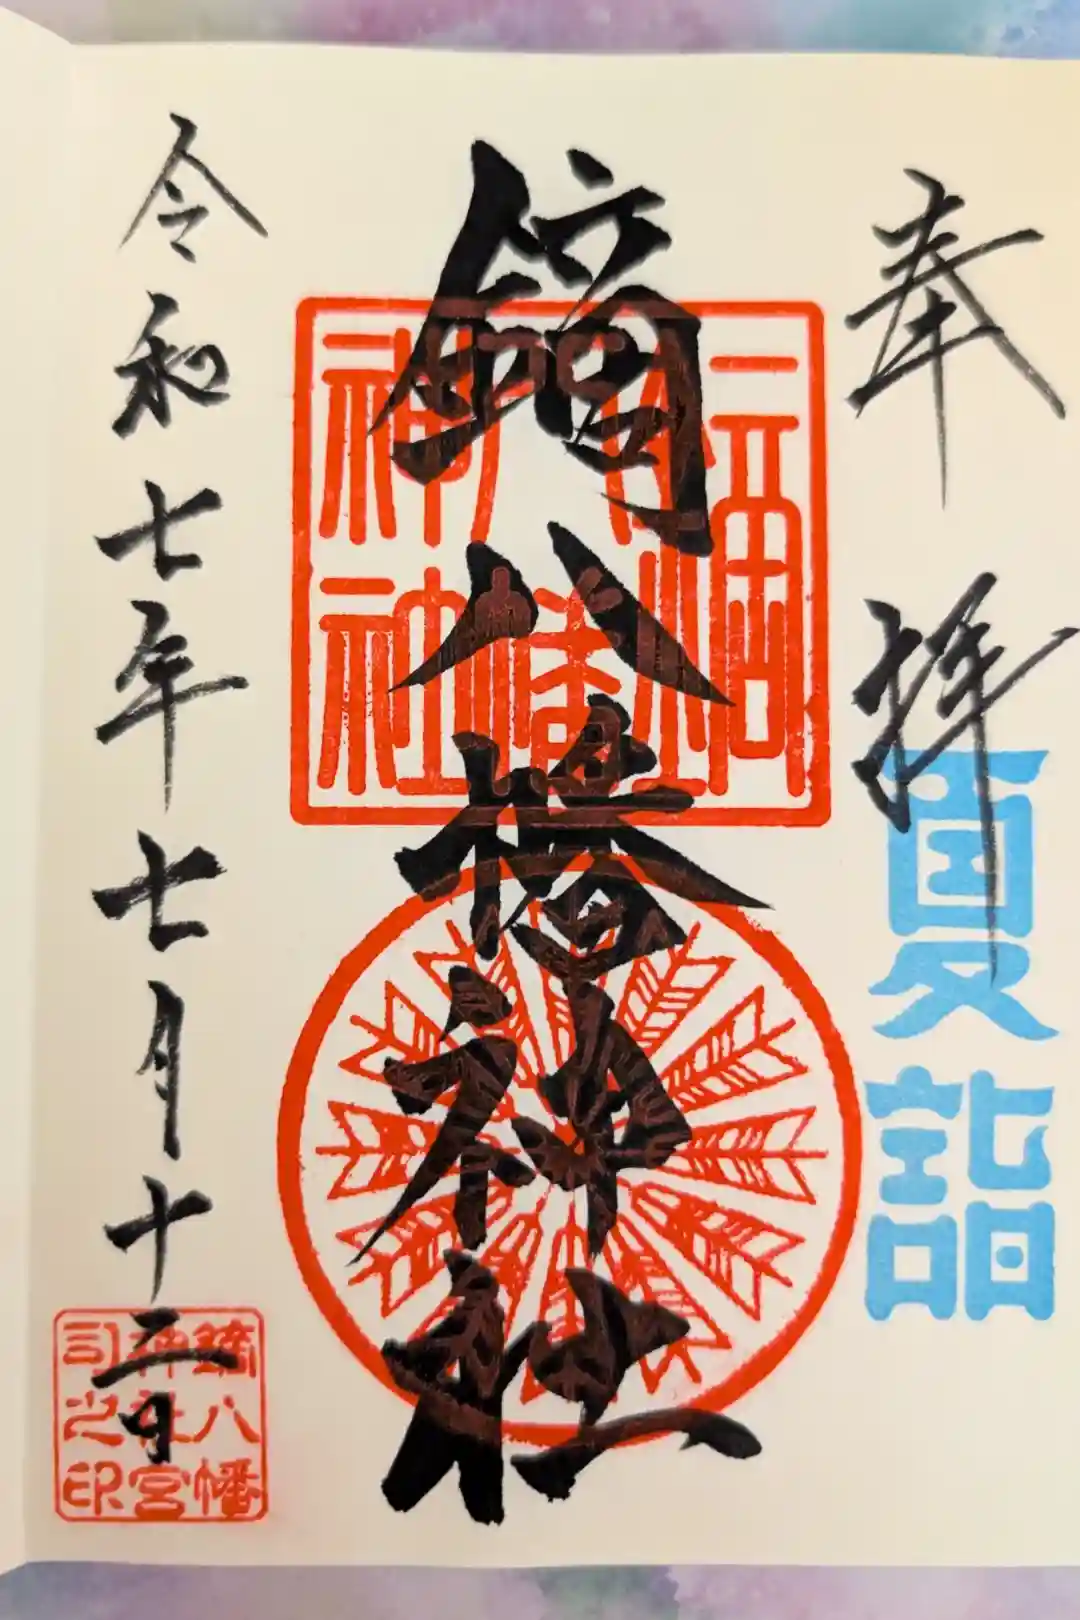 奉拝
夏詣
鏑八幡神社
令和七年七月十二日
鏑八幡
神社宮
司之印